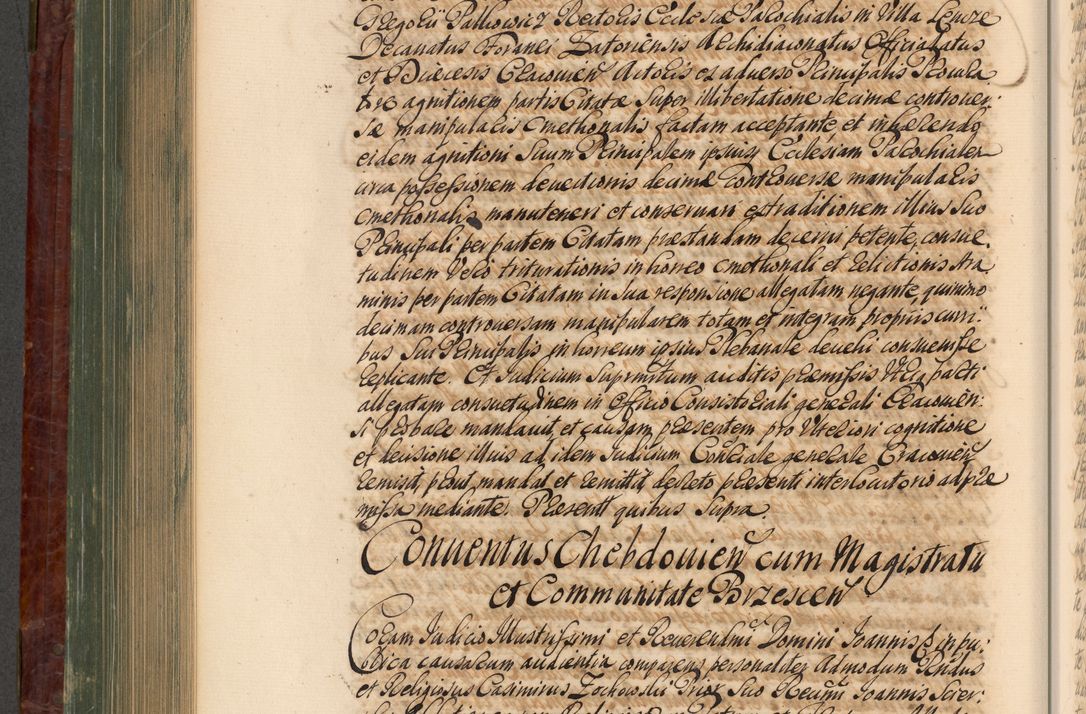 Gregorii Palkowicz Rectoris Ecclesiæ Parochialis in Villa Lencze
Decanatus Foranei Zatoriensis Archidiaconatus Officialatus
et Diæcesis Cracovień Actoris ex adverso Principalis Procura
tore agnitionem partis Citatæ super illibertatione decimæ controver:
sæ manipularis cmethonalis factam acceptante, et inhærendo
eidem agnitioni suum Principalem ipsiusq Ecclesiam Parochialem
circa possessionem devectionis decimæ controversæ manipularis
cmethonalis manuteneri et conservari extraditionem illius suo
Principali per partem Citatam præstandam decerni petente, consue.
tudinem vero triturationis in horreo cmethonali et relictionis stra
minis per partem Citatam in sua responsione allegatam negante, quinimo
decimam controversam manipularem totam et integram propriis curri:
bus sui Principalis in horreum ipsius Plebanale devehi consuevisse
replicante. Et Judicium Supremum auditis præmissis utriq parti
allegatam consuetudinem in Officio Consistoriali generali Cracovien:
si probare mandavit, et causam præsentem pro ulteriori cognitione
et decisione illius ad idem Judicium Consriale generale Cracovień
remisit, prout mandat et remittit decreto præsenti interlocutorio ad præ
missa mediante. Præsentt quibus supra.
Conventus Chebdovień cum Magistratu
et Communitate Brzescień
Coram Judicio Illustrissimi et Reverendmi Domini Joannis in pu:
blica causarum audientia comparens personaliter Admodum Rndus
et Religiosus Casimirus Zochowski Prior suo Joannis